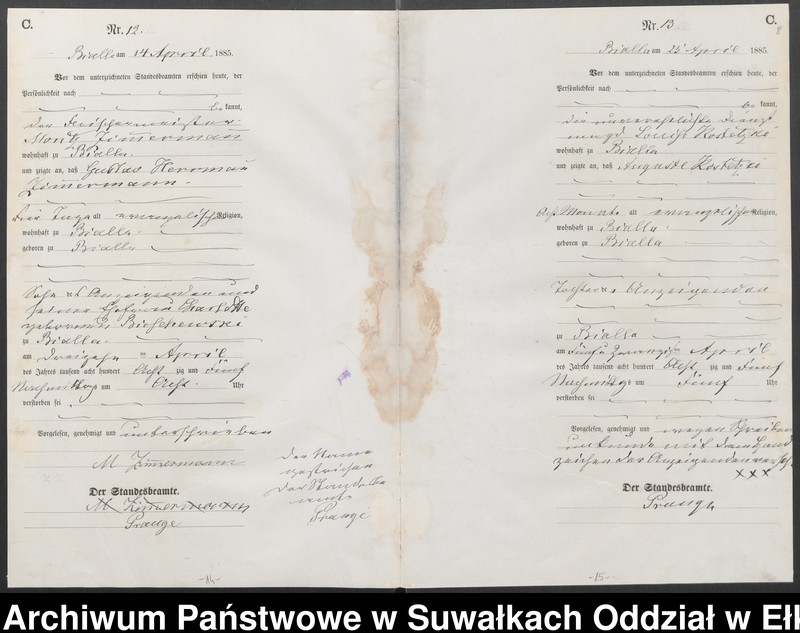 C.
Nr. 12.
Bialla am 14 April 1885.
Vor dem unterzeichneten Standesbeamten erschien heute, der
Persönlichkeit nach
be kannt,
der Fleischermeister
Moritz Zimmermann
wohnhaft zu Bialla.
und zeigte an, daß Gustav Herrmann
Zimmermann.
drei Tage alt evangelischer Religion,
wohnhaft zu Bialla
geboren zu Bialla
Sohn des Anzeigenden und
seiner Ehefrau Charlotte
geborene
zu Bialla.
am dreizehn ten April
des Jahres tausend acht hundert Acht zig und fünf
Nachmittags um Acht Uhr
verstorben sei
Vorgelesen, genehmigt und unterschrieben
M Zimmermann
Der Standesbeamte.
M Zimmermann
Prange
Der Name
gestrichen
Der Standesbe
amte
Prange
-14-
Nr. 13
C.
8
Bialla am 25 April 1885.
Vor dem unterzeichneten Standesbeamten erschien heute, der
Persönlichkeit nach
be kannt,
die unverehelichte Dienst
magd Louise Kostetzki
wohnhaft zu Bialla
und zeigte an, daß Auguste Kostetzki
Acht Monate alt evangelischer Religion,
wohnhaft zu Bialla
geboren zu Bialla
Tochter der Anzeigenden
zu Bialla
am fünf u zwanzigsten April
des Jahres tausend acht hundert Acht zig und fünf
Nachmittags um fünf Uhr
verstorben sei
Vorgelesen, genehmigt und wegen Schreibens
unkunde mit dem Hand
zeichen der Anzeigenden versehen.
XXX
Der Standesbeamte.
Prange
-15-
Archiwum Państwowe w Suwałkach Oddział w Ełk